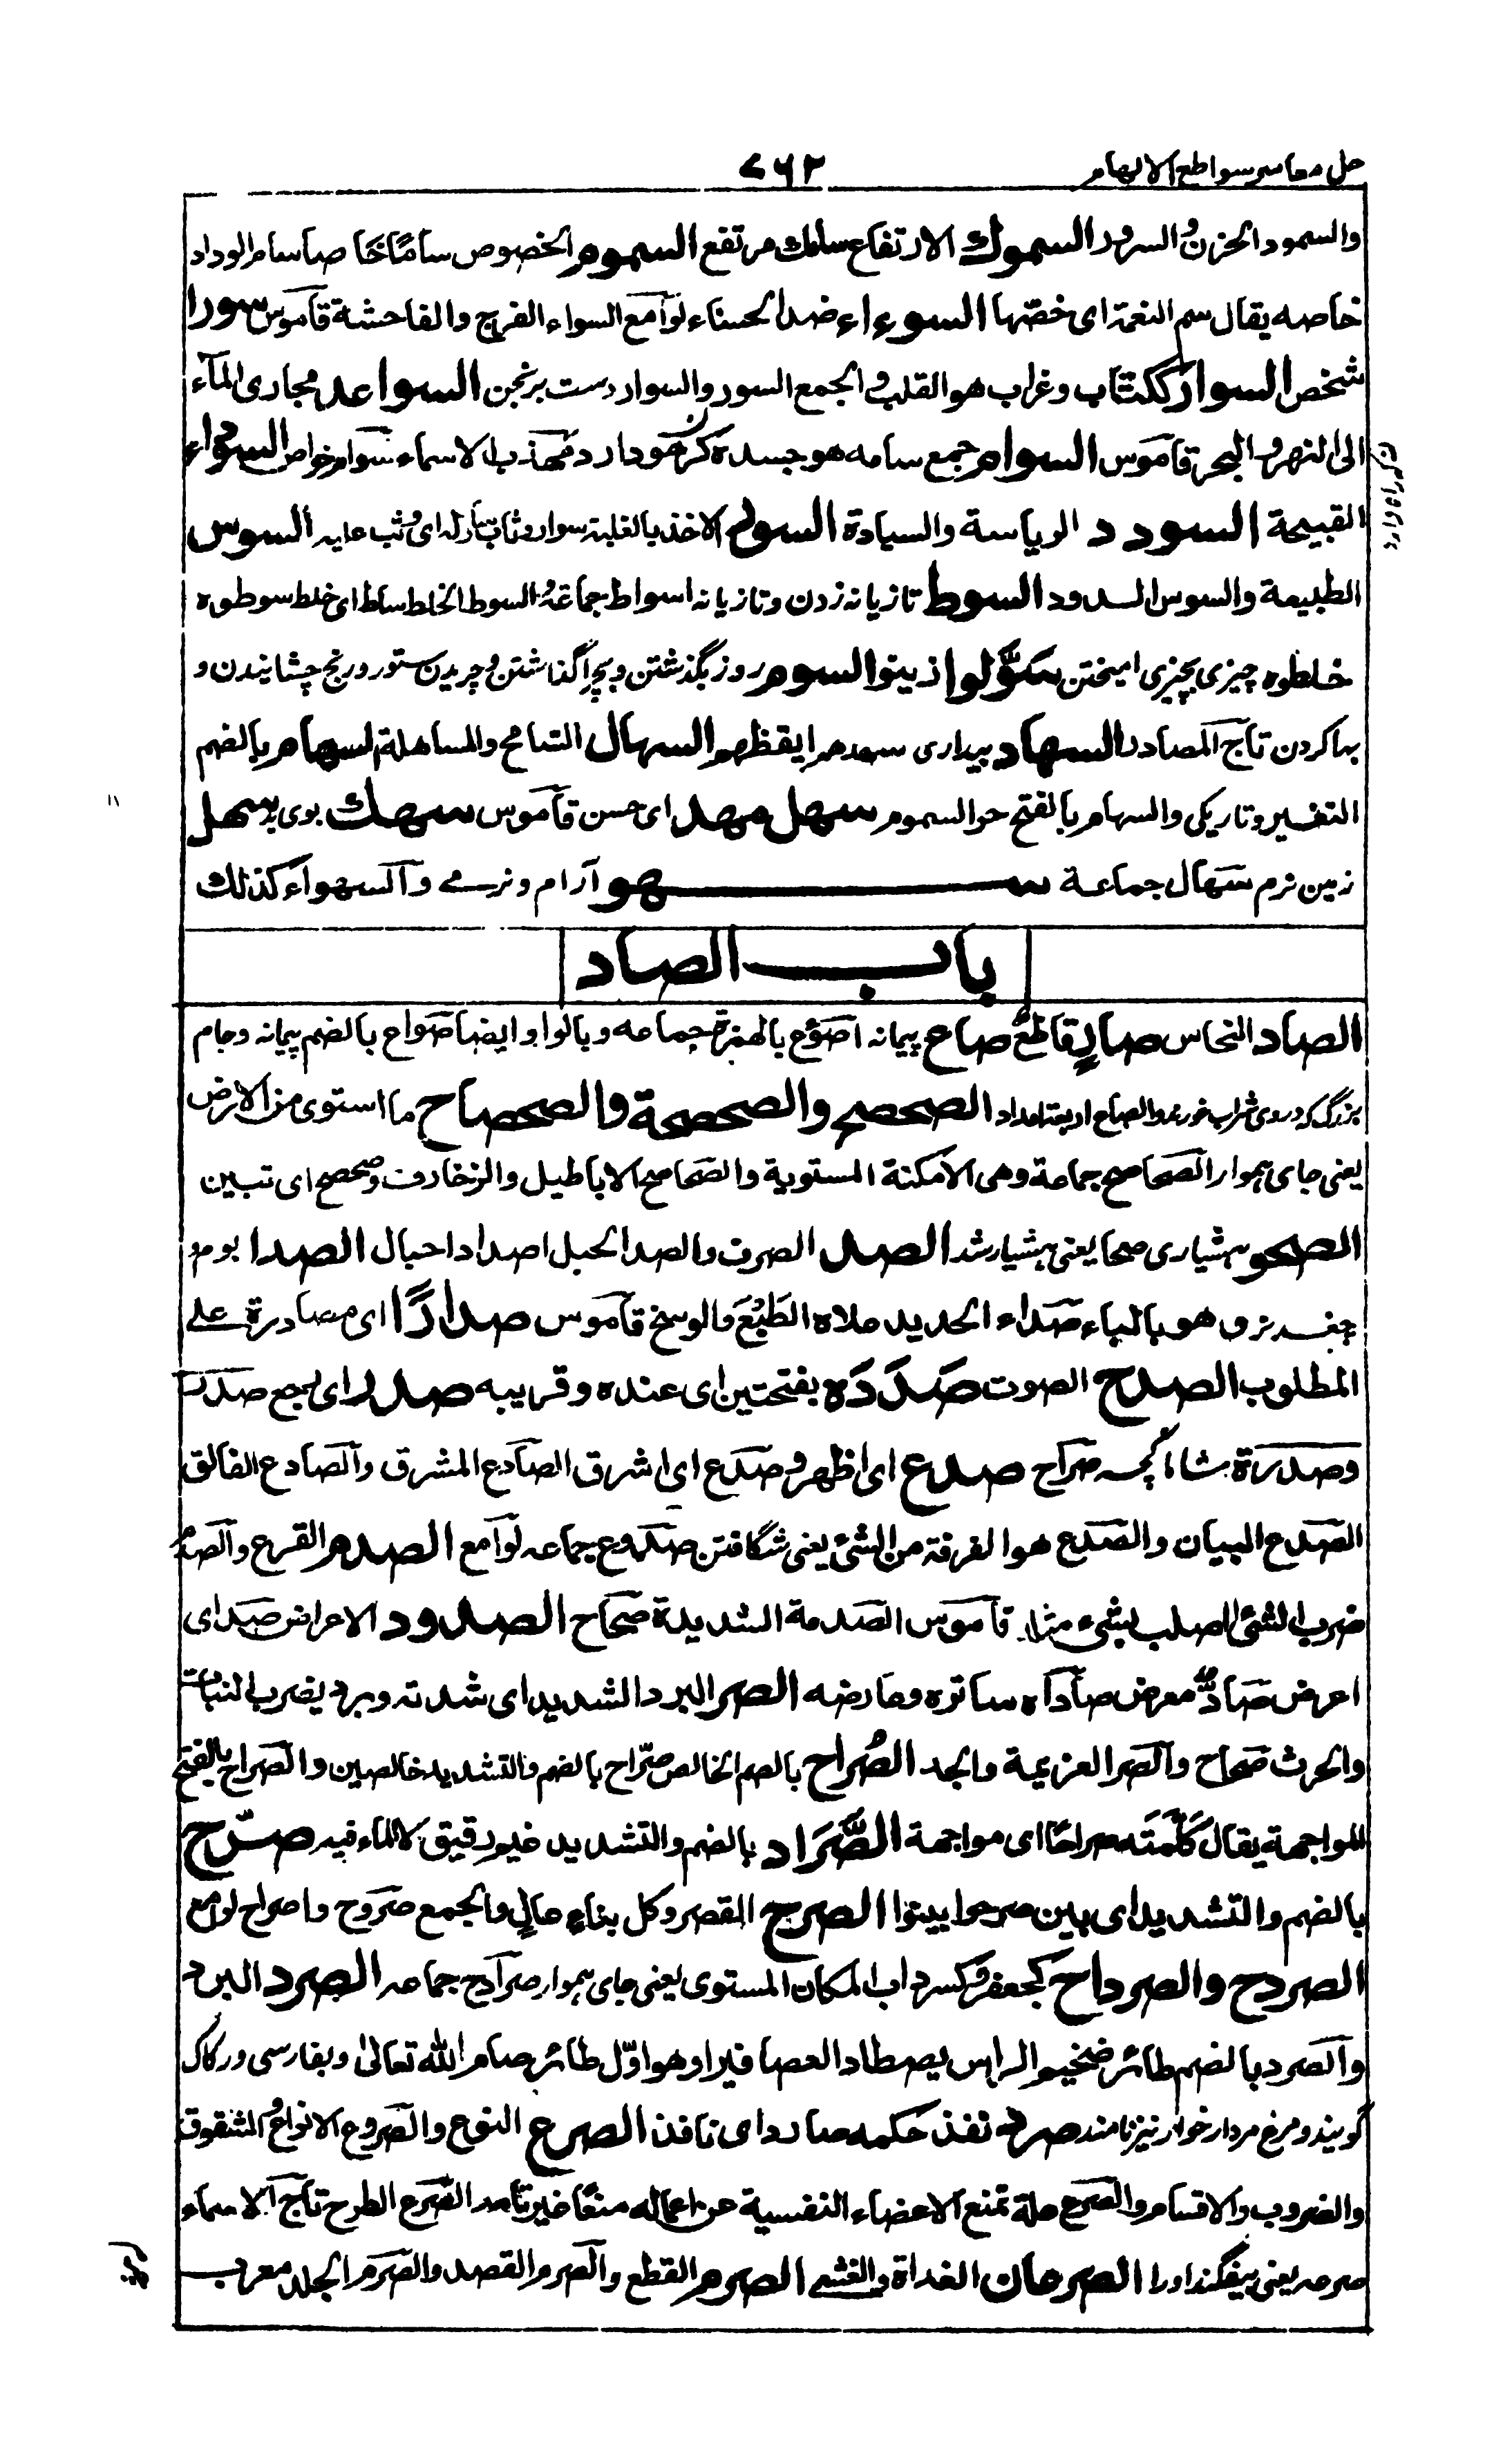 حل معاسر سواطع الالهام ۷۶۲
والسمود الحزن والسرور السموك الارتفاع سامك مرتفع السموم الخصوص ساماخا صا سام الوداد
خاصه يقال سم النعمة اى خصّها السوءاء ضد الحسناء لوامع السواء الفرج والفاحشة قاموس سورا
شخص السوار ككتاب وغراب هو القلب والجمع السور والسوار دست برنجن السواعد مجارى الماء
الى النهر والبحر قاموس السوام جمع سامه هو جسدة مهذب الاسماء سوام خواص السوءاء
القبيحة السودد الرياسة والسيادة السور الاخذ بالغلبة سوار وثاب سار له اى وثب عليه السوس
الطبيعة والسوس الدود السوط تازيانه زدن وتازيانه اسواط جماعة والسوط الخلط ساط اى خلط سوطوه
خلطوه چيزى بچيزى اميختن سوّلوا زينوا السوم روز بگذشتن وبچرا گذاشتن وچريدن ستور ورنج چشانيدن و
بها كردن تاج المصادر السهاد بيدارى سهدهم ايقظهم السهال التسامح والمساهلة السهام بالضم
التغير وتاريكى والسهام بالفتح حر السموم سهل مهد اى حسن قاموس سهك بوى بد سهل
زمين نرم سهال جماعة سهو آرام ونرمى والسهواء كذلك
باب الصاد
الصاد النحاس صارم قاطع صاع پيمانه اصؤع بالهمزة جماعه وبالواو ايضا صواع بالضم پيمانه وجام
بزرگ كه دروى شراب خورند والصاع اربعة امداد الصحصح والصحصحة والصحصاح ما استوى من الارض
يعنى جاى هموار الصحاصح جماعة وهى الامكنة المستوية والصحاصح الاباطيل والزخارف وصحصح اى تبين
الصحو هشيارى صحا يعنى هشيار شد الصد الصرف والصد الجبل اصداد اجبال الصدا بوم و
چغد نر وهو بالياء صداء الحديد علاه الطبع والوسخ قاموس صدارًا اى مصادرة على
المطلوب الصدح الصوت صَدَدَه بفتحتين اى عنده وقريبه صدر اى رجع صدر
وصدرة صراح صدع اى اظهر وصدع اى اشرق الصادع المشرق والصادع الفالق
الصدع البيان والصدع هو الفرقة من الشئ يعنى شگافتن صدوع جماعه لوامع الصدم القرع والصدم
ضرب الشئ الصلب بشىء مثله قاموس الصدمة الشديدة صحاح الصدود الاعراض صد اى
اعرض صادّ معرض صاداه ساتره وعارضه الصر البرد الشديد اى شدته وبرد يضرب النبات
والحرث صحاح والصر العزيمة والجد الصُراح بالضم الخالص صرّاح بالضم والتشديد خالصين والصراح بالفتح
المواجهة يقال كلّمته صراحًا اى مواجهة الصُّرَّاد بالضم والتشديد غيم رقيق لا ماء فيه صرّح
بالضم والتشديد اى بين صرحوا بينوا الصرح القصر وكل بناء عال والجمع صروح واصراح لوامع
الصردح والصرداح كجعفر وكسرداب المكان المستوى يعنى جاى هموار صرادح جماعه الصرد البرد
والصرد بالضم طائر ضخيم الراس يصطاد العصافير او هو اوّل طائر صام الله تعالى وبفارسى وركاك
گويند ومرغ مردار خوار نيز نامند صرد نفذ حكمه صارد اى نافذ الصرع النوع والصروع الانواع والشقوق
والضروب والاقسام والصرع علة تمنع الاعضاء النفسية عن اعماله منعًا غير تام والصرع الطرح تاج الاسماء
صرعه يعنى بيفگند اورا الصرعان الغداة والعشى الصرم القطع والصرم القصد والصرم الجلد معرب